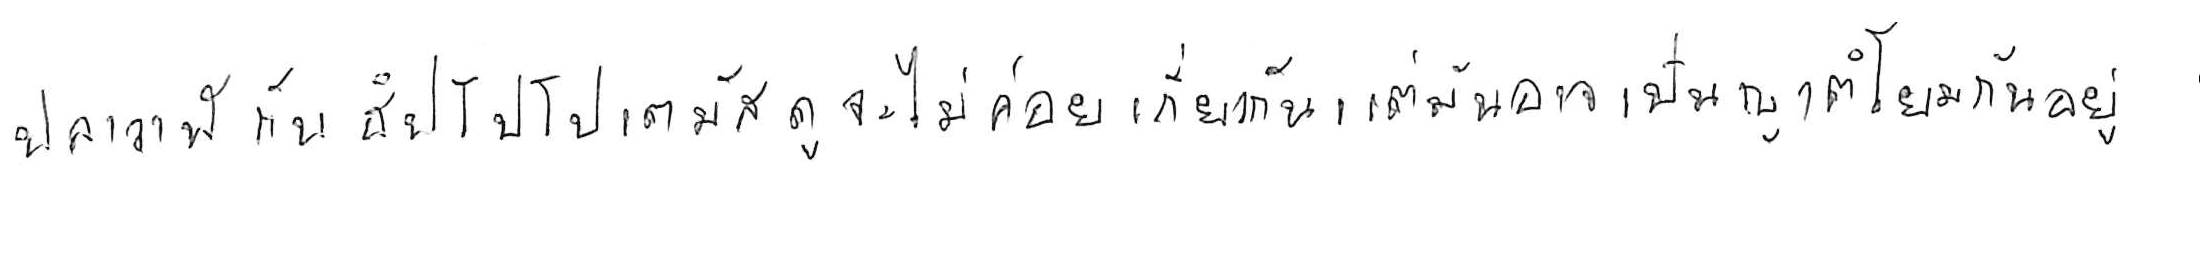 ปลาวาฬกับฮิปโปโปเตมัสดูจะไม่ค่อยเกี่ยวกันแต่มันอาจเป็นญาติโยมกันอยู่